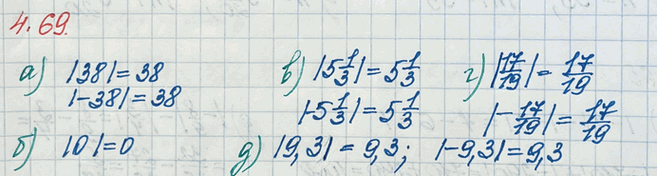 4.69.
а) |38|=38
|-38|=38
б) |0|=0
в) |5 1/3|=5 1/3
|-5 1/3|=5 1/3
г) |17/19|=17/19
|-17/19|=17/19
д) |9,3|=9,3; |-9,3|=9,3